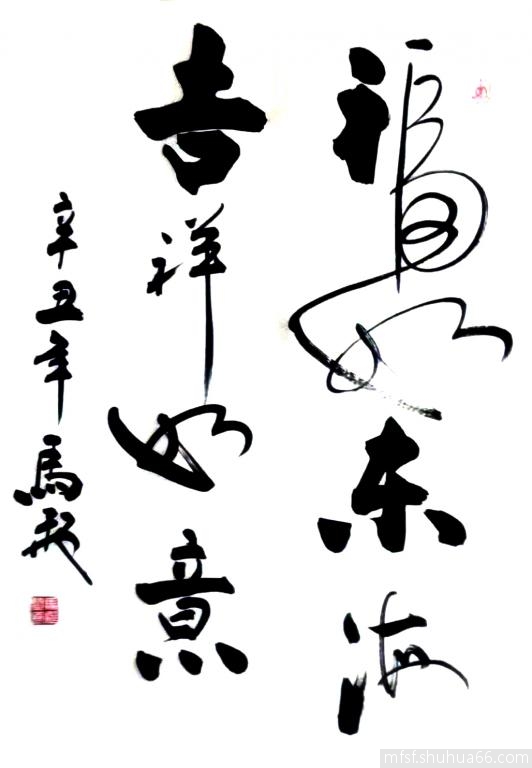 福如东海
吉祥如意
辛丑年馬彪
mfsf.shuhua66.com